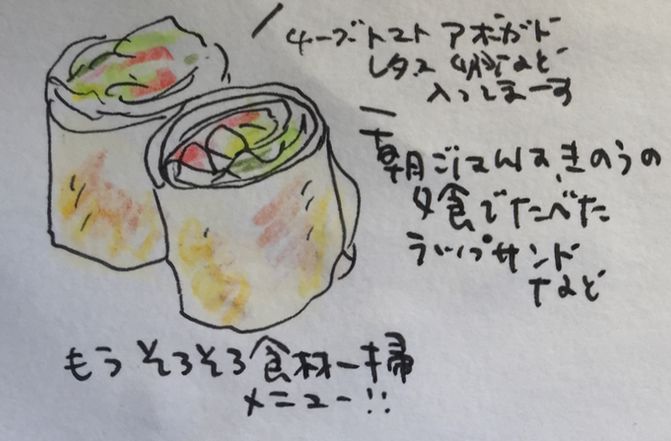 チーズトマト アボガド
レタス 卵など
入ってまーす
朝ごはんは、きのうの
夕食でたべた
ラップサンド
など
もう そろそろ食材一掃
メニュー!!